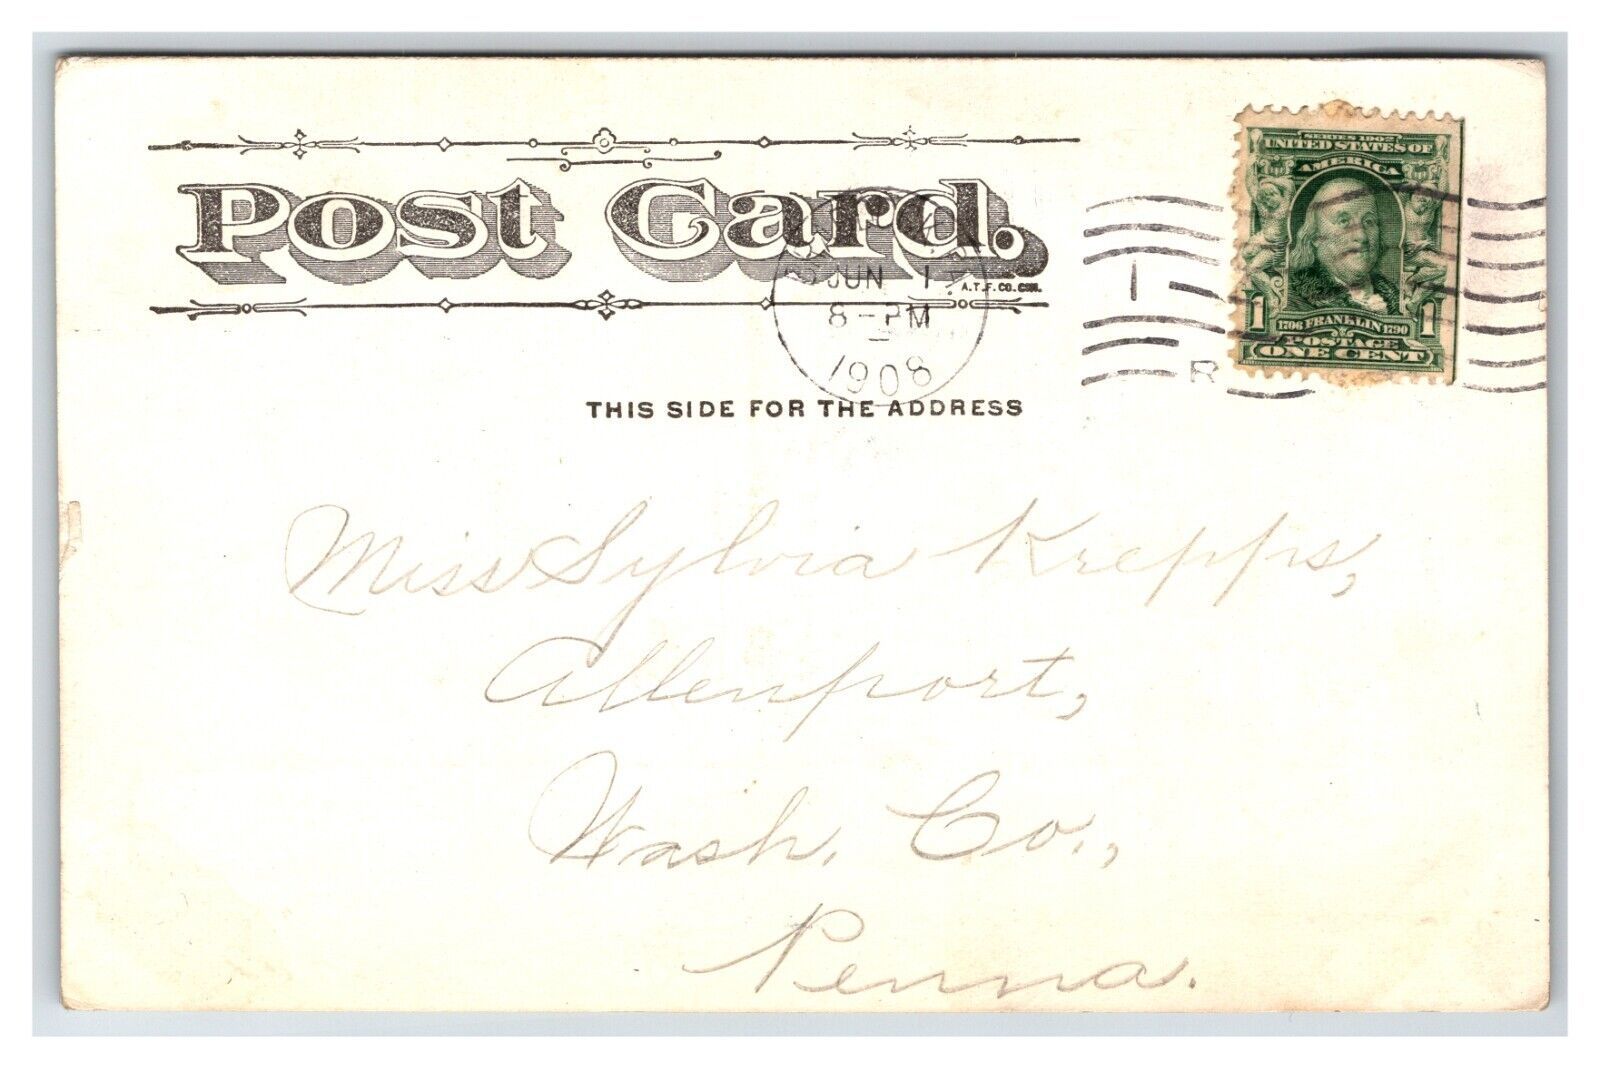 Post Card.
A.T.F. CO. CON.
JUN 1
8-PM
1908
1
R
SERIES 1902
UNITED STATES OF
AMERICA
1 1
1706 FRANKLIN 1790
POSTAGE
ONE CENT
THIS SIDE FOR THE ADDRESS
Miss Sylvia Krepps,
Allenport,
Wash. Co.,
Penna.